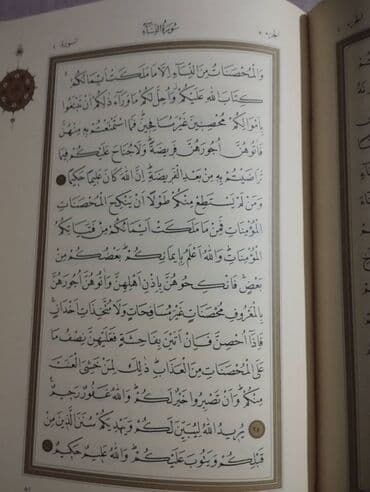 سُورَةُ النِّسَاءِ
وَالْمُحْصَنَاتُ مِنَ النِّسَاءِ اِلَّا مَا مَلَكَتْ اَيْمَانُكُمْ
كِتَابَ اللّٰهِ عَلَيْكُمْ وَاُحِلَّ لَكُمْ مَا وَرَاءَ ذٰلِكُمْ اَنْ تَبْتَغُوا
بِاَمْوَالِكُمْ مُحْصِنِينَ غَيْرَ مُسَافِحِينَ فَمَا اسْتَمْتَعْتُمْ بِهِ مِنْهُنَّ
فَاٰتُوهُنَّ اُجُورَهُنَّ فَرِيضَةً وَلَا جُنَاحَ عَلَيْكُمْ فِيمَا
تَرَاضَيْتُمْ بِهِ مِنْ بَعْدِ الْفَرِيضَةِ اِنَّ اللّٰهَ كَانَ عَلِيمًا حَكِيمًا
وَمَنْ لَمْ يَسْتَطِعْ مِنْكُمْ طَوْلًا اَنْ يَنْكِحَ الْمُحْصَنَاتِ
الْمُؤْمِنَاتِ فَمِنْ مَا مَلَكَتْ اَيْمَانُكُمْ مِنْ فَتَيَاتِكُمُ
الْمُؤْمِنَاتِ وَاللّٰهُ اَعْلَمُ بِاِيمَانِكُمْ بَعْضُكُمْ مِنْ
بَعْضٍ فَانْكِحُوهُنَّ بِاِذْنِ اَهْلِهِنَّ وَاٰتُوهُنَّ اُجُورَهُنَّ
بِالْمَعْرُوفِ مُحْصَنَاتٍ غَيْرَ مُسَافِحَاتٍ وَلَا مُتَّخِذَاتِ اَخْدَانٍ
فَاِذَا اُحْصِنَّ فَاِنْ اَتَيْنَ بِفَاحِشَةٍ فَعَلَيْهِنَّ نِصْفُ مَا
عَلَى الْمُحْصَنَاتِ مِنَ الْعَذَابِ ذٰلِكَ لِمَنْ خَشِيَ الْعَنَتَ
مِنْكُمْ وَاَنْ تَصْبِرُوا خَيْرٌ لَكُمْ وَاللّٰهُ غَفُورٌ رَحِيمٌ
٢٥ يُرِيدُ اللّٰهُ لِيُبَيِّنَ لَكُمْ وَيَهْدِيَكُمْ سُنَنَ الَّذِينَ مِنْ
قَبْلِكُمْ وَيَتُوبَ عَلَيْكُمْ وَاللّٰهُ عَلِيمٌ حَكِيمٌ